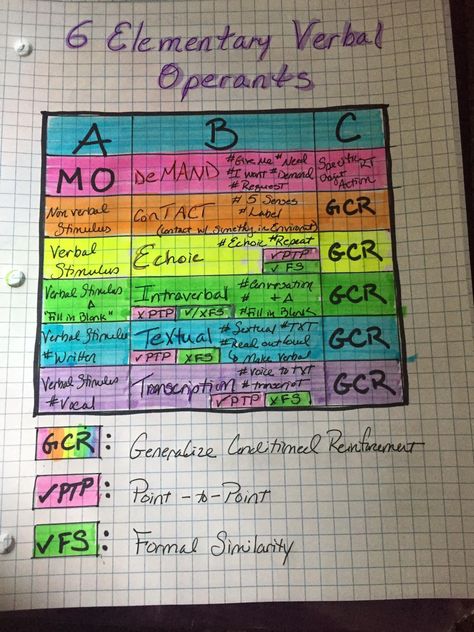 6 Elementary Verbal
Operants
A B C
MO
DeMAND
#Give me #Need
#I want #Demand
#Request
Specific IT
Object
Action
Non verbal
Stimulus
ConTACT
#5 Senses
#Label
(contact w/ something in Environment)
GCR
Verbal
Stimulus
Echoic
#Echoic #Repeat
✓PTP
✓FS
GCR
Verbal Stimulus
Δ
"Fill in Blank"
Intraverbal
#Conversation
#Fill in Blank
XPTP
✓/XFS
GCR
Verbal Stimulus
#Written
Textual
#TXT
#Read out loud
↳ Make Verbal
✓PTP
XFS
GCR
Verbal Stimulus
#Vocal
Transcription
#Voice to TXT
#transcript
✓PTP
XFS
GCR
GCR : Generalize Conditioned Reinforcement
✓PTP : Point-to-Point
✓FS : Formal Similarity